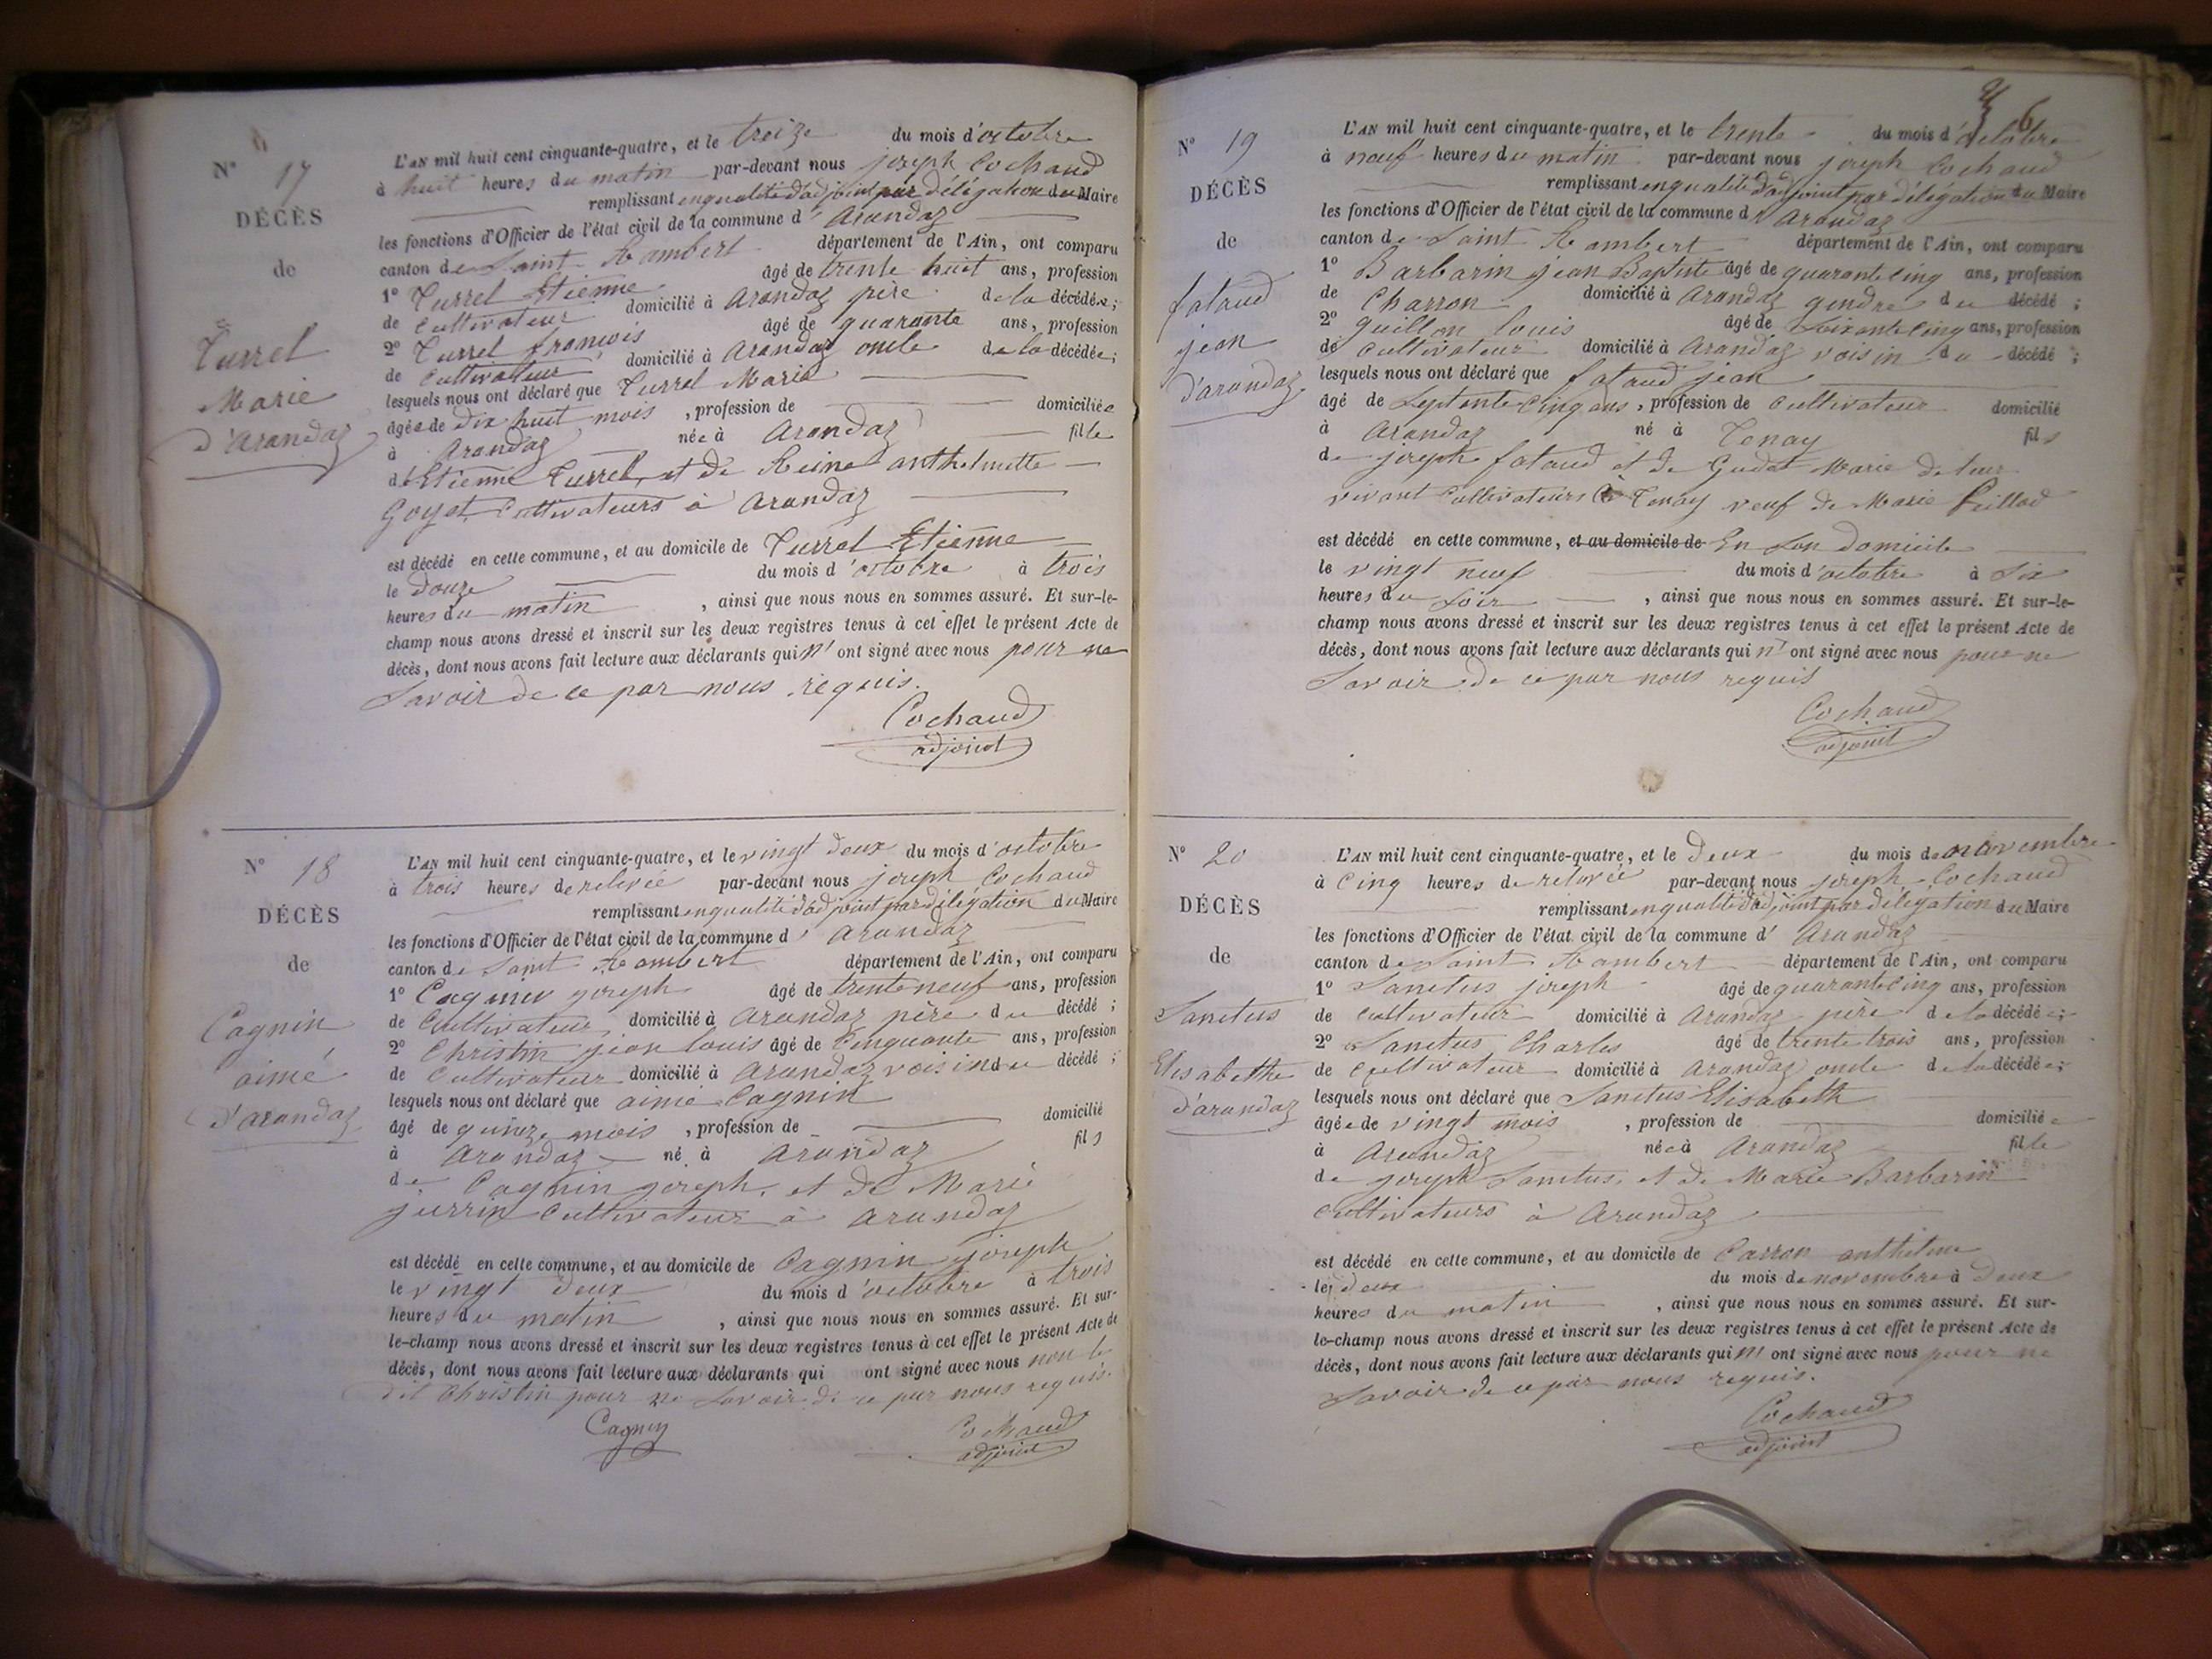 N° 17
DÉCÈS
de
Turrel
Marie
d'Arandaz
L'AN mil huit cent cinquante-quatre, et le treize du mois d'octobre
à huit heures du matin par-devant nous joseph Cochaud
remplissant en qualité d'adjoint par délégation du Maire
les fonctions d'Officier de l'état civil de la commune d' Arandaz
canton de Saint Rambert département de l'Ain, ont comparu
1° Turrel Etienne âgé de trente huit ans, profession
de Cultivateur domicilié à Arandaz père de la décédée;
2° Turrel françois âgé de quarante ans, profession
de Cultivateur domicilié à Arandaz oncle de la décédée;
lesquels nous ont déclaré que Turrel Marie
âgée de dix huit mois, profession de domiciliée
à Arandaz née à Arandaz fille
d'Etienne Turrel, et de Reine anthelmette
Goyet Cultivateurs à Arandaz
est décédé en cette commune, et au domicile de Turrel Etienne
le douze du mois d'octobre à trois
heures du matin, ainsi que nous nous en sommes assuré. Et sur-le-
champ nous avons dressé et inscrit sur les deux registres tenus à cet effet le présent Acte de
décès, dont nous avons fait lecture aux déclarants qui n' ont signé avec nous pour ne
Savoir de ce par nous requis.
Cochaud
adjoint
N° 18
DÉCÈS
de
Cagnin
aimé
d'arandaz
L'AN mil huit cent cinquante-quatre, et le vingt deux du mois d'octobre
à trois heures de relevée par-devant nous joseph Cochaud
remplissant en qualité d'adjoint par délégation du Maire
les fonctions d'Officier de l'état civil de la commune d' Arandaz
canton de Saint Rambert département de l'Ain, ont comparu
1° Cagnin joseph âgé de trente neuf ans, profession
de Cultivateur domicilié à Arandaz père du décédé;
2° Christin jean louis âgé de Cinquante ans, profession
de Cultivateur domicilié à Arandaz voisin du décédé;
lesquels nous ont déclaré que aimé Cagnin
âgé de quinze mois, profession de domicilié
à Arandaz né à Arandaz fils
de Cagnin joseph, et de Marie
jurrin Cultivateur à Arandaz
est décédé en cette commune, et au domicile de Cagnin joseph
le vingt deux du mois d'octobre à trois
heures du matin, ainsi que nous nous en sommes assuré. Et sur-
le-champ nous avons dressé et inscrit sur les deux registres tenus à cet effet le présent Acte de
décès, dont nous avons fait lecture aux déclarants qui ont signé avec nous non le
dit Christin pour ne Savoir de ce par nous requis.
Cagnin Cochaud
adjoint
6
N° 19
DÉCÈS
de
fataud
jean
d'arandaz
L'AN mil huit cent cinquante-quatre, et le trente du mois d'octobre
à neuf heures du matin par-devant nous joseph Cochaud
remplissant en qualité d'adjoint par délégation du Maire
les fonctions d'Officier de l'état civil de la commune d' Arandaz
canton de Saint Rambert département de l'Ain, ont comparu
1° Barbarin jean Baptiste âgé de quarante cinq ans, profession
de Charron domicilié à Arandaz gendre du décédé;
2° Guillon louis âgé de Soixante cinq ans, profession
de Cultivateur domicilié à Arandaz voisin du décédé;
lesquels nous ont déclaré que fataud jean
âgé de Septente cinq ans, profession de Cultivateur domicilié
à Arandaz né à Tenay fils
de joseph fataud et de Gudet Marie de leur
vivant Cultivateurs à Tenay veuf de Marie
est décédé en cette commune, et au domicile de En Son domicile
le vingt neuf du mois d'octobre à Six
heures du Soir, ainsi que nous nous en sommes assuré. Et sur-le-
champ nous avons dressé et inscrit sur les deux registres tenus à cet effet le présent Acte de
décès, dont nous avons fait lecture aux déclarants qui n' ont signé avec nous pour ne
Savoir de ce par nous requis
Cochaud
adjoint
N° 20
DÉCÈS
de
Sanctus
Elisabethe
d'arandaz
L'AN mil huit cent cinquante-quatre, et le deux du mois de novembre
à Cinq heures de relevée par-devant nous joseph Cochaud
remplissant en qualité d'adjoint par délégation du Maire
les fonctions d'Officier de l'état civil de la commune d' Arandaz
canton de Saint Rambert département de l'Ain, ont comparu
1° Sanctus joseph âgé de quarante cinq ans, profession
de Cultivateur domicilié à Arandaz père de la décédée;
2° Sanctus Charles âgé de trente trois ans, profession
de Cultivateur domicilié à Arandaz oncle de la décédée;
lesquels nous ont déclaré que Sanctus Elisabeth
âgée de vingt mois, profession de domiciliée
à Arandaz née à Arandaz fille
de joseph Sanctus, et de Marie Barbarin
Cultivateurs à Arandaz
est décédé en cette commune, et au domicile de Carron anthelme
le deux du mois de novembre à deux
heures du matin, ainsi que nous nous en sommes assuré. Et sur-
le-champ nous avons dressé et inscrit sur les deux registres tenus à cet effet le présent Acte de
décès, dont nous avons fait lecture aux déclarants qui n' ont signé avec nous pour ne
Savoir de ce par nous requis.
Cochaud
adjoint